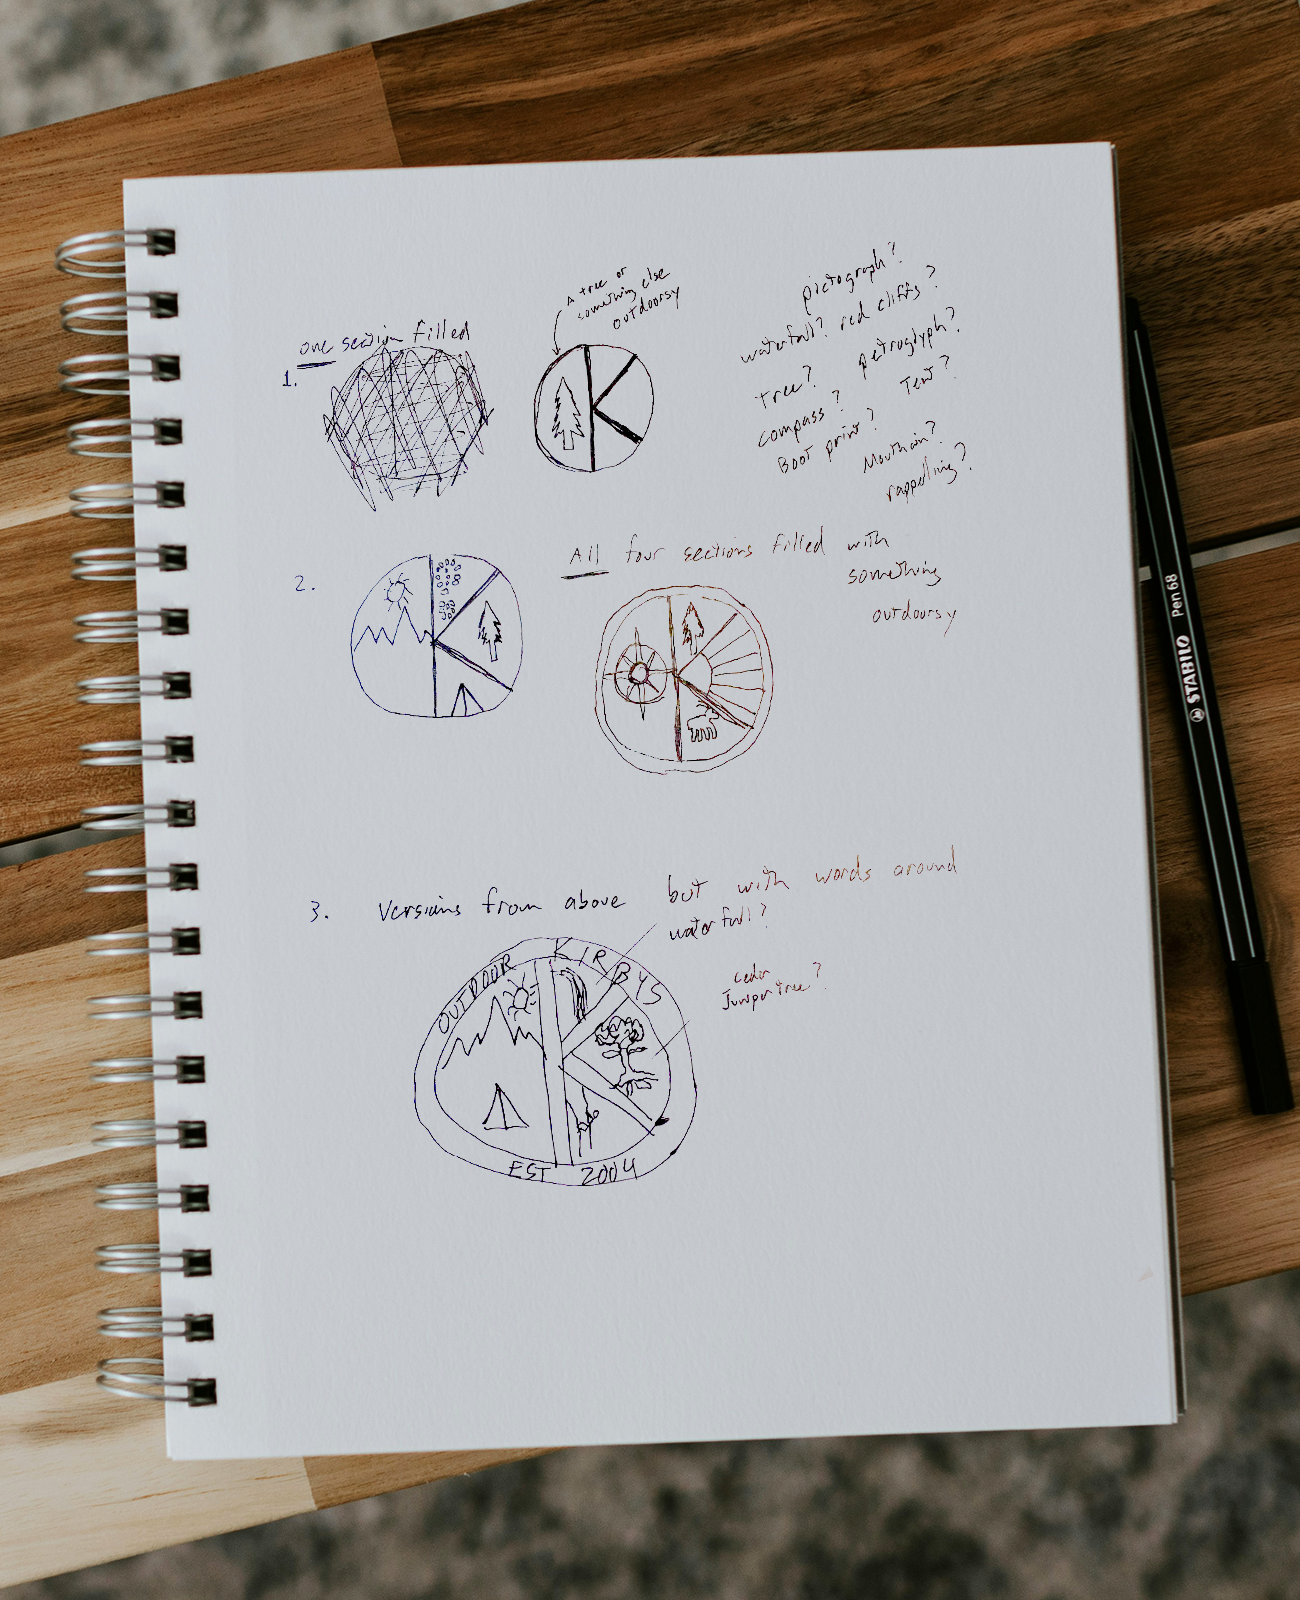 one section filled
1.
A tree or
something else
outdoorsy
K
pictograph?
waterfall? red cliffs?
petroglyph?
Tree?
Tent?
compass?
Boot print?
Mountain?
rappelling?
2.
All four sections filled with
something
outdoorsy
3. Versions from above but with words around
waterfall?
cedar
Juniper tree?
OUTDOOR KIRBYS
EST 2004
STABILO Pen 68